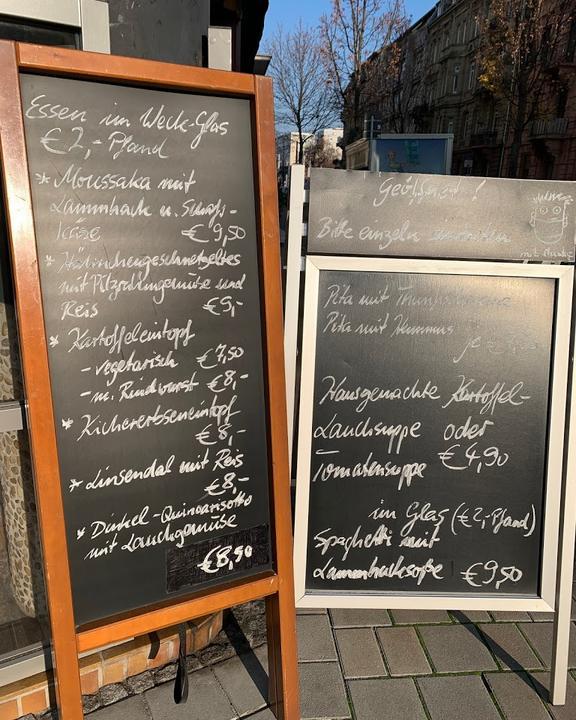 Essen im Weck-Glas
€2,- Pfand
* Moussaka mit
Lammhack u. Schafs-
käse €9,50
* Hähnchengeschnetzeltes
mit Pilzrahmgemüse und
Reis €9,-
* Kartoffeleintopf
- vegetarisch €7,50
- m. Rindwurst €8,-
* Kichererbseneintopf
€8,-
* Linsendal mit Reis
€8,-
* Dinkel-Quinoarisotto
mit Lauchgemüse
€8,90
Geöffnet!
Bitte einzeln
mit Maske
Pita mit
Pita mit Hummus
je
Hausgemachte Kartoffel-
Lauchsuppe oder
Tomatensuppe €4,90
im Glas (€2,-Pfand)
Spaghetti mit
Lammhacksoße €9,50